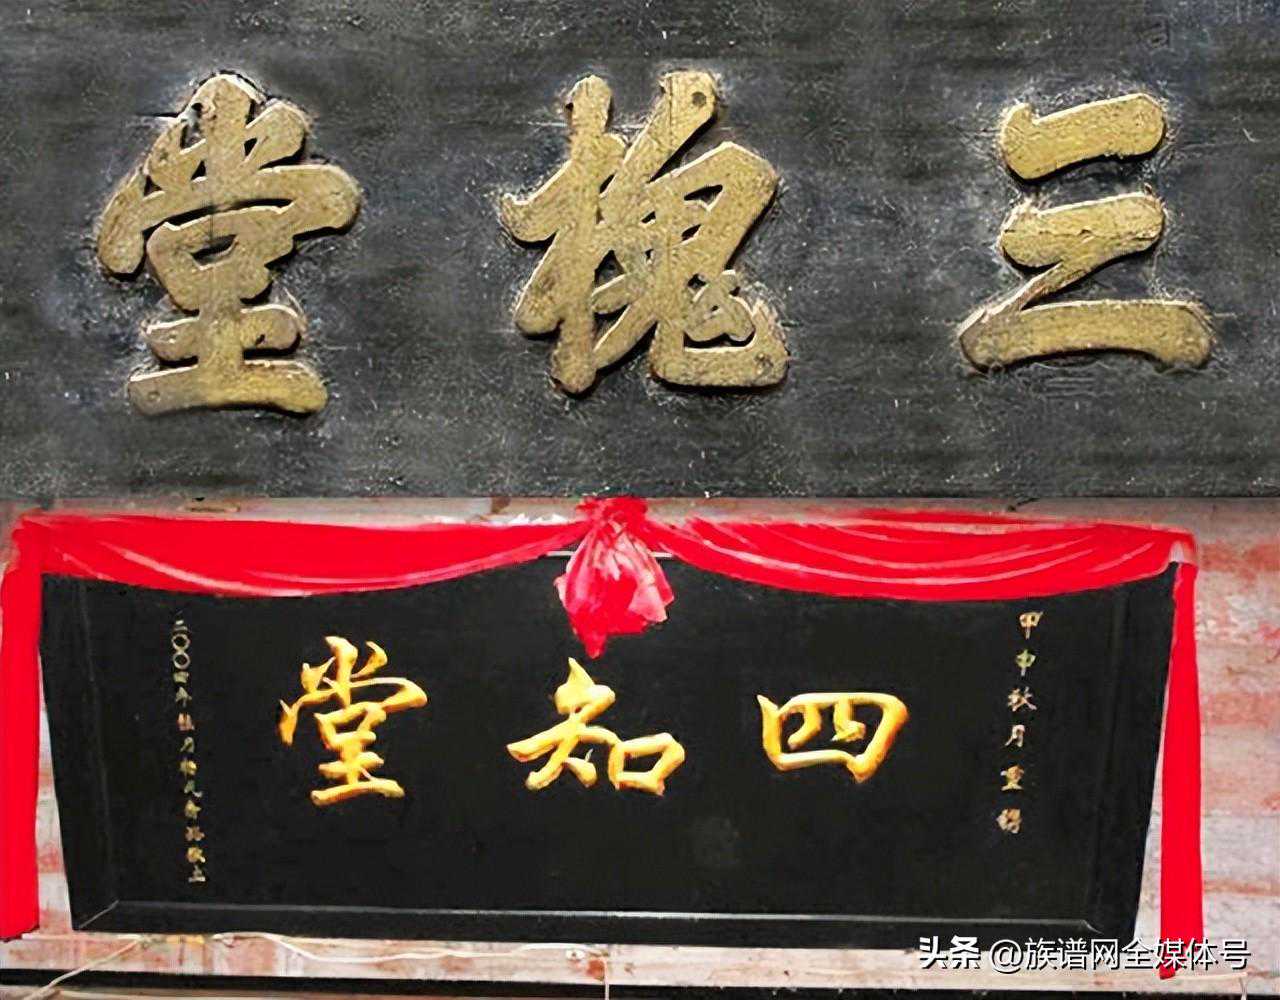 三槐堂
甲申秋月重
四知堂
二〇〇四年桂月敬立
头条 @族谱网全媒体号